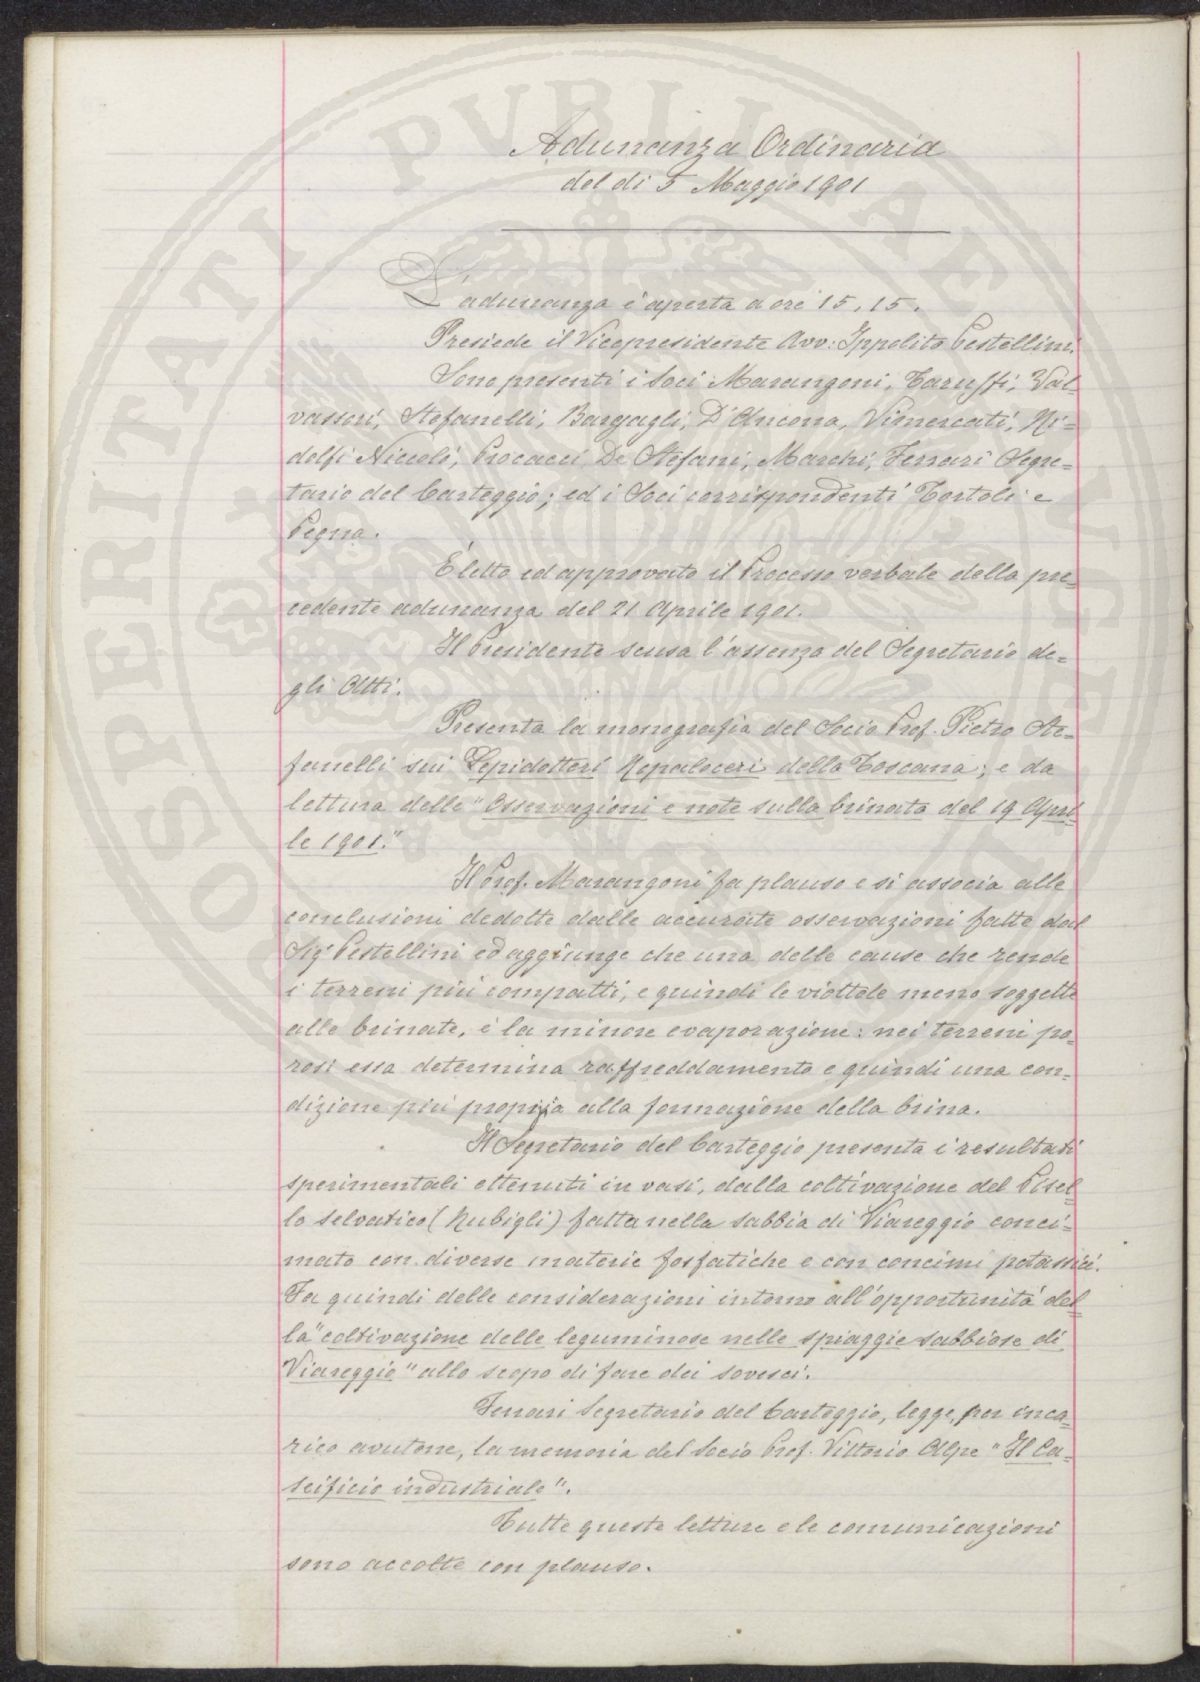 Adunanza Ordinaria
del dì 5 Maggio 1901
L'adunanza è aperta a ore 15,15.
Presiede il Vicepresidente Avv: Ippolito Pestellini.
Sono presenti i Soci Marangoni, Taruffi, Val-
vassori, Stefanelli, Bargagli, D'Ancona, Vimercati, Ri=
dolfi Niccolò, Procacci, De Stefani, Marchi, Ferrari Segre=
tario del Carteggio; ed i Soci corrispondenti Bortoli e
Pegna.
È letto ed approvato il Processo verbale della pre
cedente adunanza del 21 Aprile 1901.
Il Presidente scusa l'assenza del Segretario de=
gli Atti.
Presenta la monografia del Socio Prof. Pietro Ste=
fanelli sui Lepidotteri Ropaloceri della Toscana; e da
lettura delle "Osservazioni e note sulla brinata del 19 Apri-
le 1901."
Il Prof. Marangoni fa plauso e si associa alle
conclusioni dedotte dalle accurate osservazioni fatte dal
Sigr Pestellini ed aggiunge che una delle cause che rende
i terreni più compatti, e quindi le viottole meno soggette
alle brinate, è la minore evaporazione: nei terreni po=
rosi essa determina raffreddamento e quindi una con=
dizione più propizia alla formazione della brina.
Il Segretario del Carteggio presenta i resultati
sperimentali ottenuti in vasi, dalla coltivazione del Pisel-
lo selvatico (Rubigli) fatta nella sabbia di Viareggio conci=
mato con diverse materie fosfatiche e con concimi potassici.
Fa quindi delle considerazioni intorno all'opportunità del=
la "coltivazione delle leguminose nelle spiaggie sabbiose di
Viareggio" allo scopo di fare dei sovesci.
Ferrari Segretario del Carteggio, legge, per inca=
rico avutone, la memoria del Socio Prof. Vittorio Alpe "Il Ca=
seificio industriale".
Tutte queste letture e le comunicazioni
sono accolte con plauso.
PROSPERITATI PUBLICAE AUGENDAE